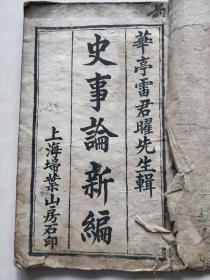 華亭雷君曜先生輯
史事論新編
上海埽葉山房石印